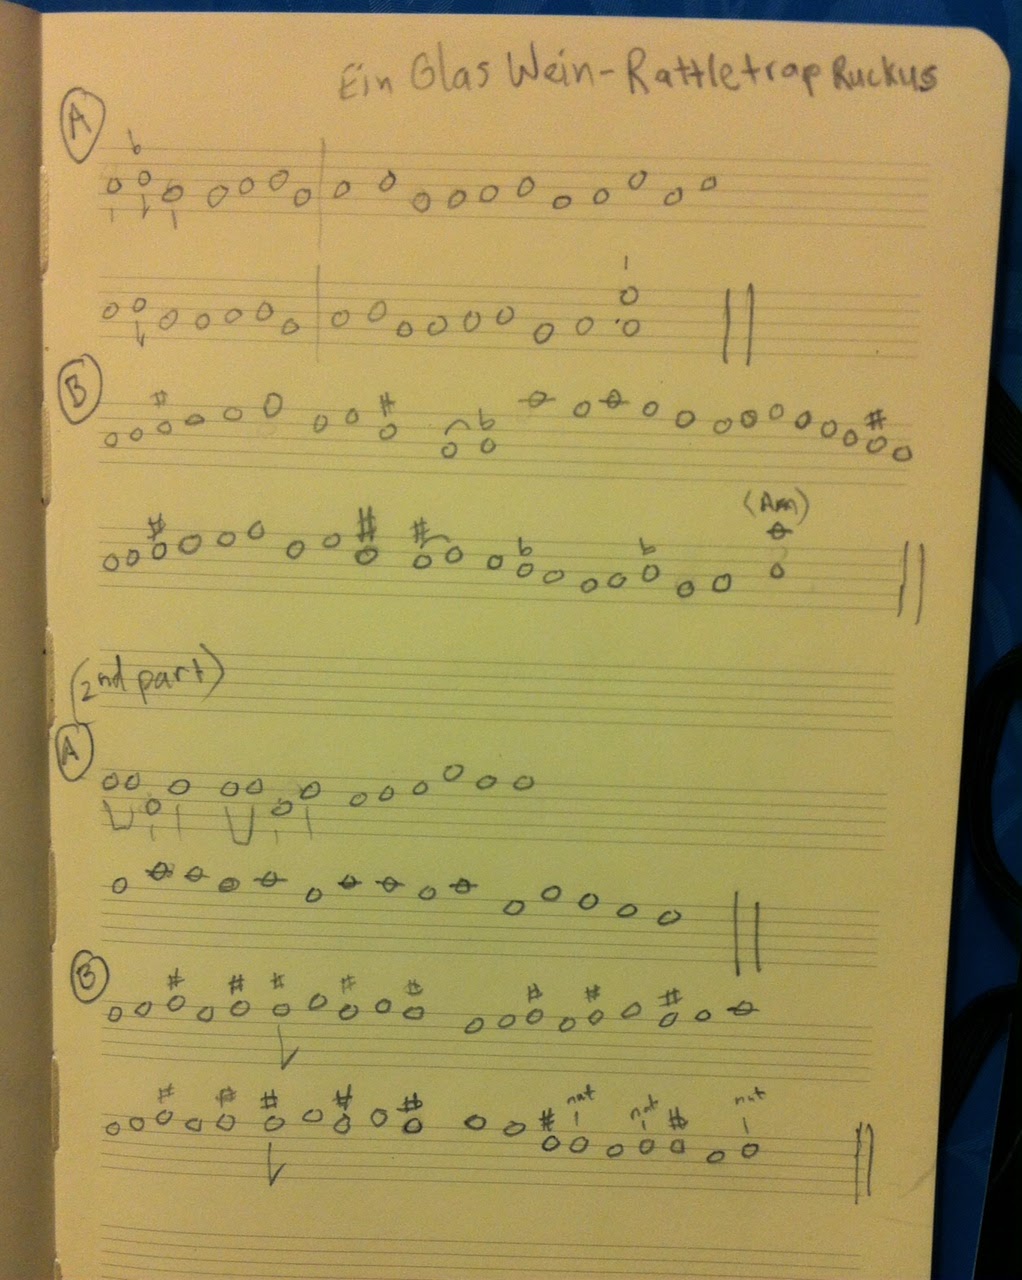 Ein Glas Wein - Rattletrap Ruckus
A
b
B
# # b #
(Am)
# # # b b
(2nd part)
A
B
# # # # # # # #
# # # # # # nat nat # nat